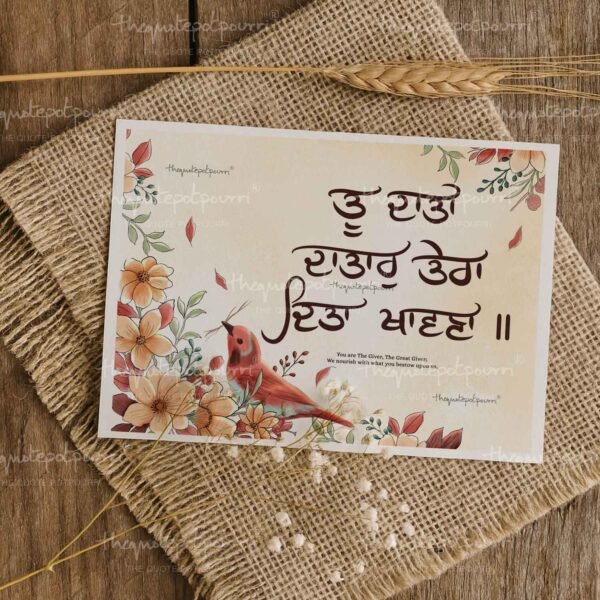 thequotepotpourri®
ਤੂ ਦਾਤਾ
ਦਾਤਾਰੁ ਤੇਰਾ
ਦਿਤਾ ਖਾਵਣਾ ॥
You are The Giver, The Great Giver;
We nourish with what you bestow upon us.
thequotepotpourri®
THE QUOTE POTPOURRI